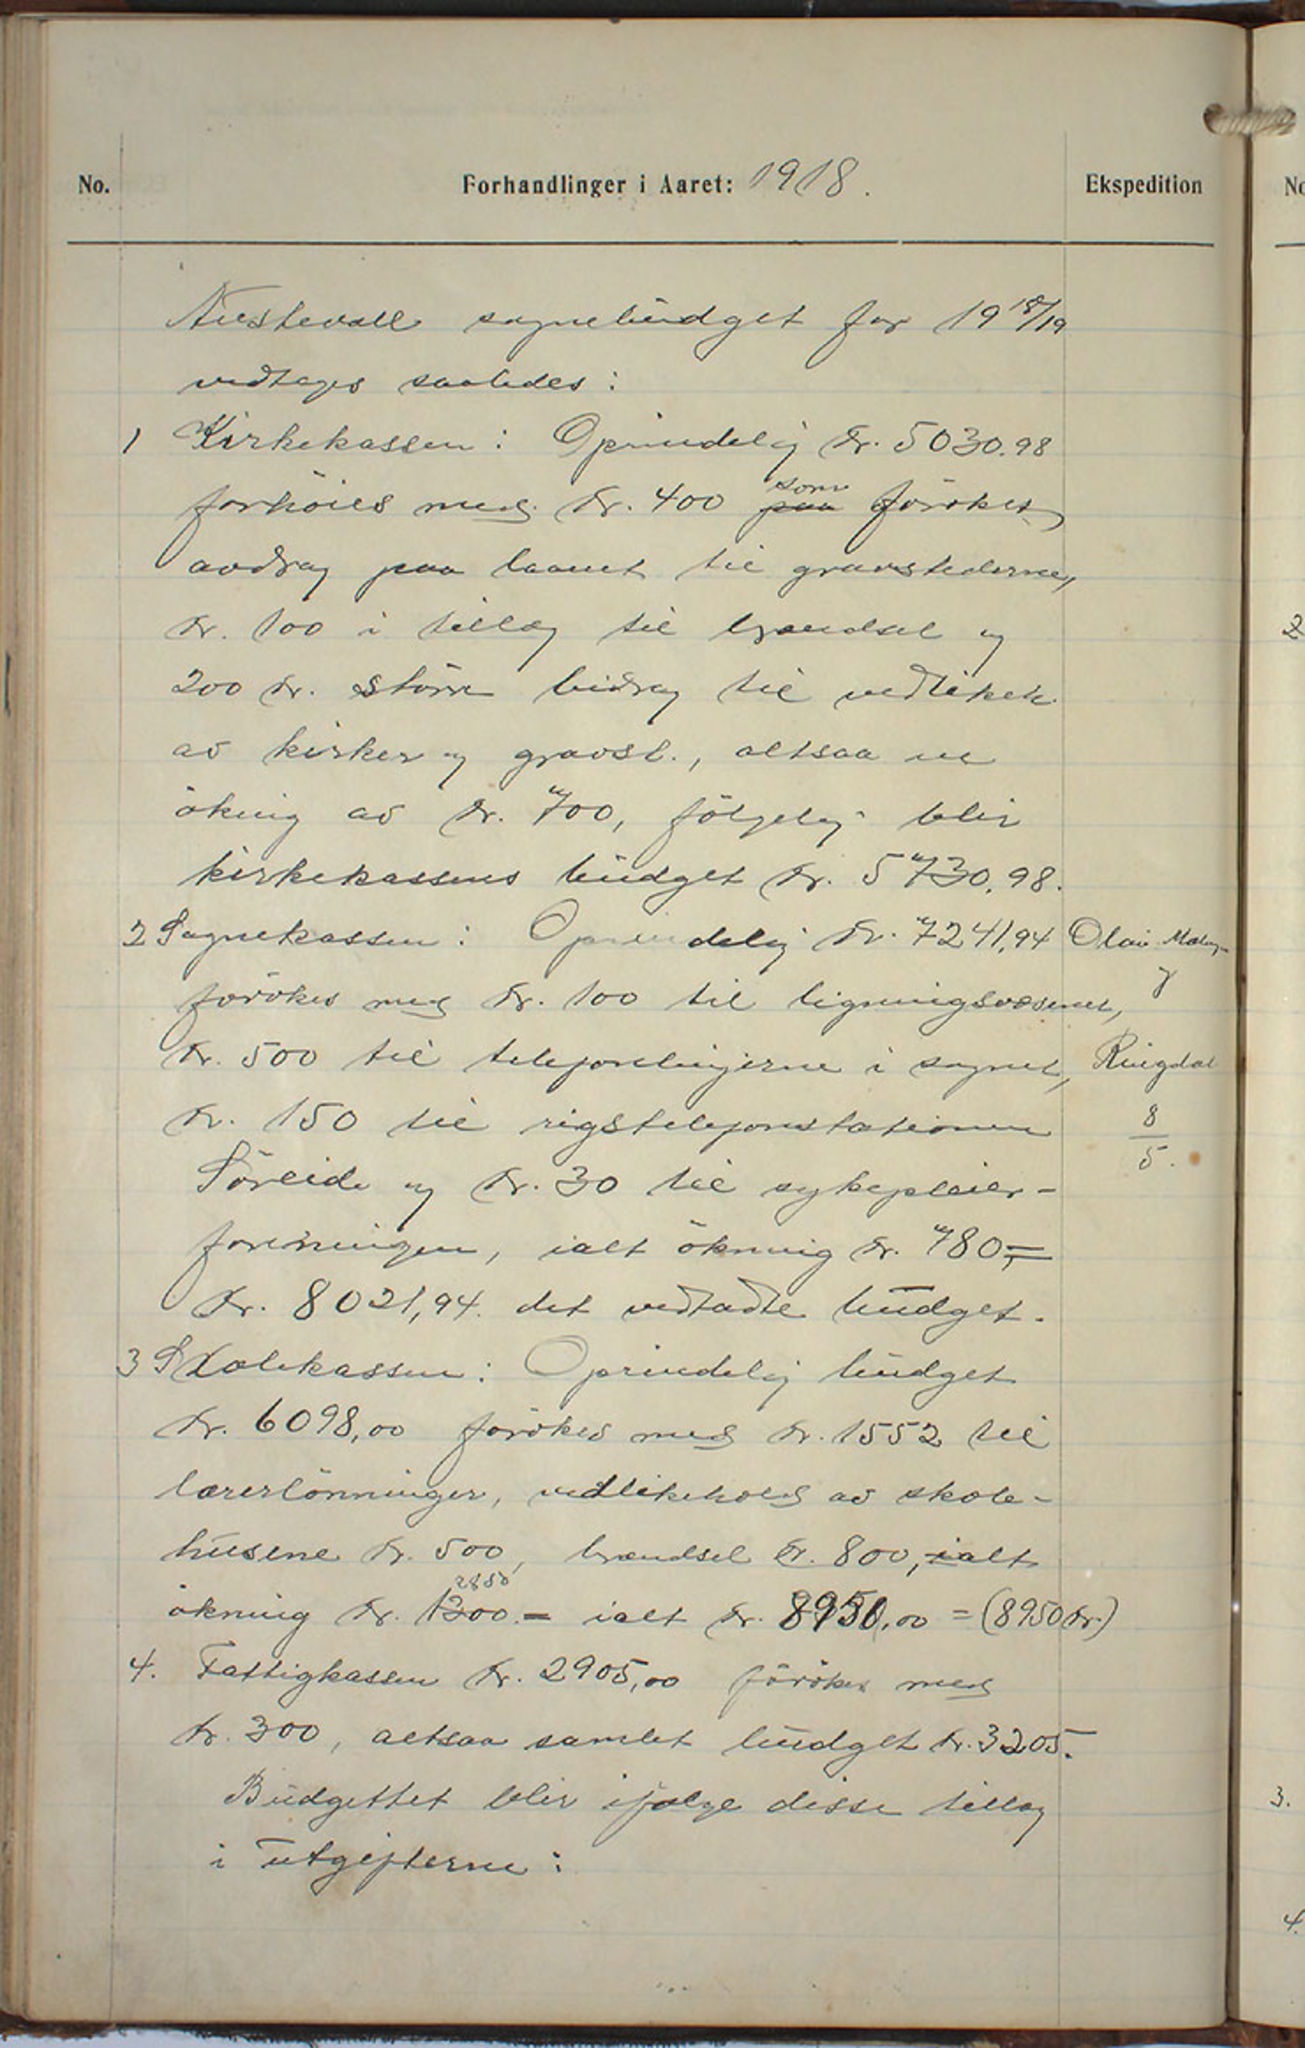 No. Forhandlinger i Aaret: 1918. Ekspedition No
Austevoll sognebudget for 19 18/19
vedtages saaledes:
1 Kirkekassen: Oprindelig kr. 5030.98
forhöies med kr. 400 paa som forökes
avdrag paa laanet til gravstederne,
kr. 100 i tillæg til brændsel og
200 kr. större bidrag til vedlikeh.
av kirker og gravst., altsaa en
ökning av kr. 700, fölgelig blir
kirkekassens budget kr. 5730.98.
2 Sognekassen: Oprindelig kr. 7241,94 Olai
forökes med kr. 100 til ligningsvæsenet, og
kr. 500 til telefonlinjerne i sognet, Ringdal
kr. 150 til rigstelefonstationen 8/5.
Söreide og kr. 30 til sykepleier-
foreningen, ialt ökning kr. 780,=
kr. 8021,94. det vedtadte budget.
3 Skolekassen: Oprindelig budget
kr. 6098,00 forökes med kr. 1552 til
lærerlönninger, vedlikehold av skole-
husene kr. 500, brændsel kr. 800, ialt
ökning kr. 1300 2850 = ialt kr. 8950,00 = (8950 kr.)
4. Fattigkassen kr. 2905,00 forökes med
kr. 300, altsaa samlet budget kr. 3205.
Budgettet blir ifölge disse tillæg
i utgifterne:
2
3.
4.